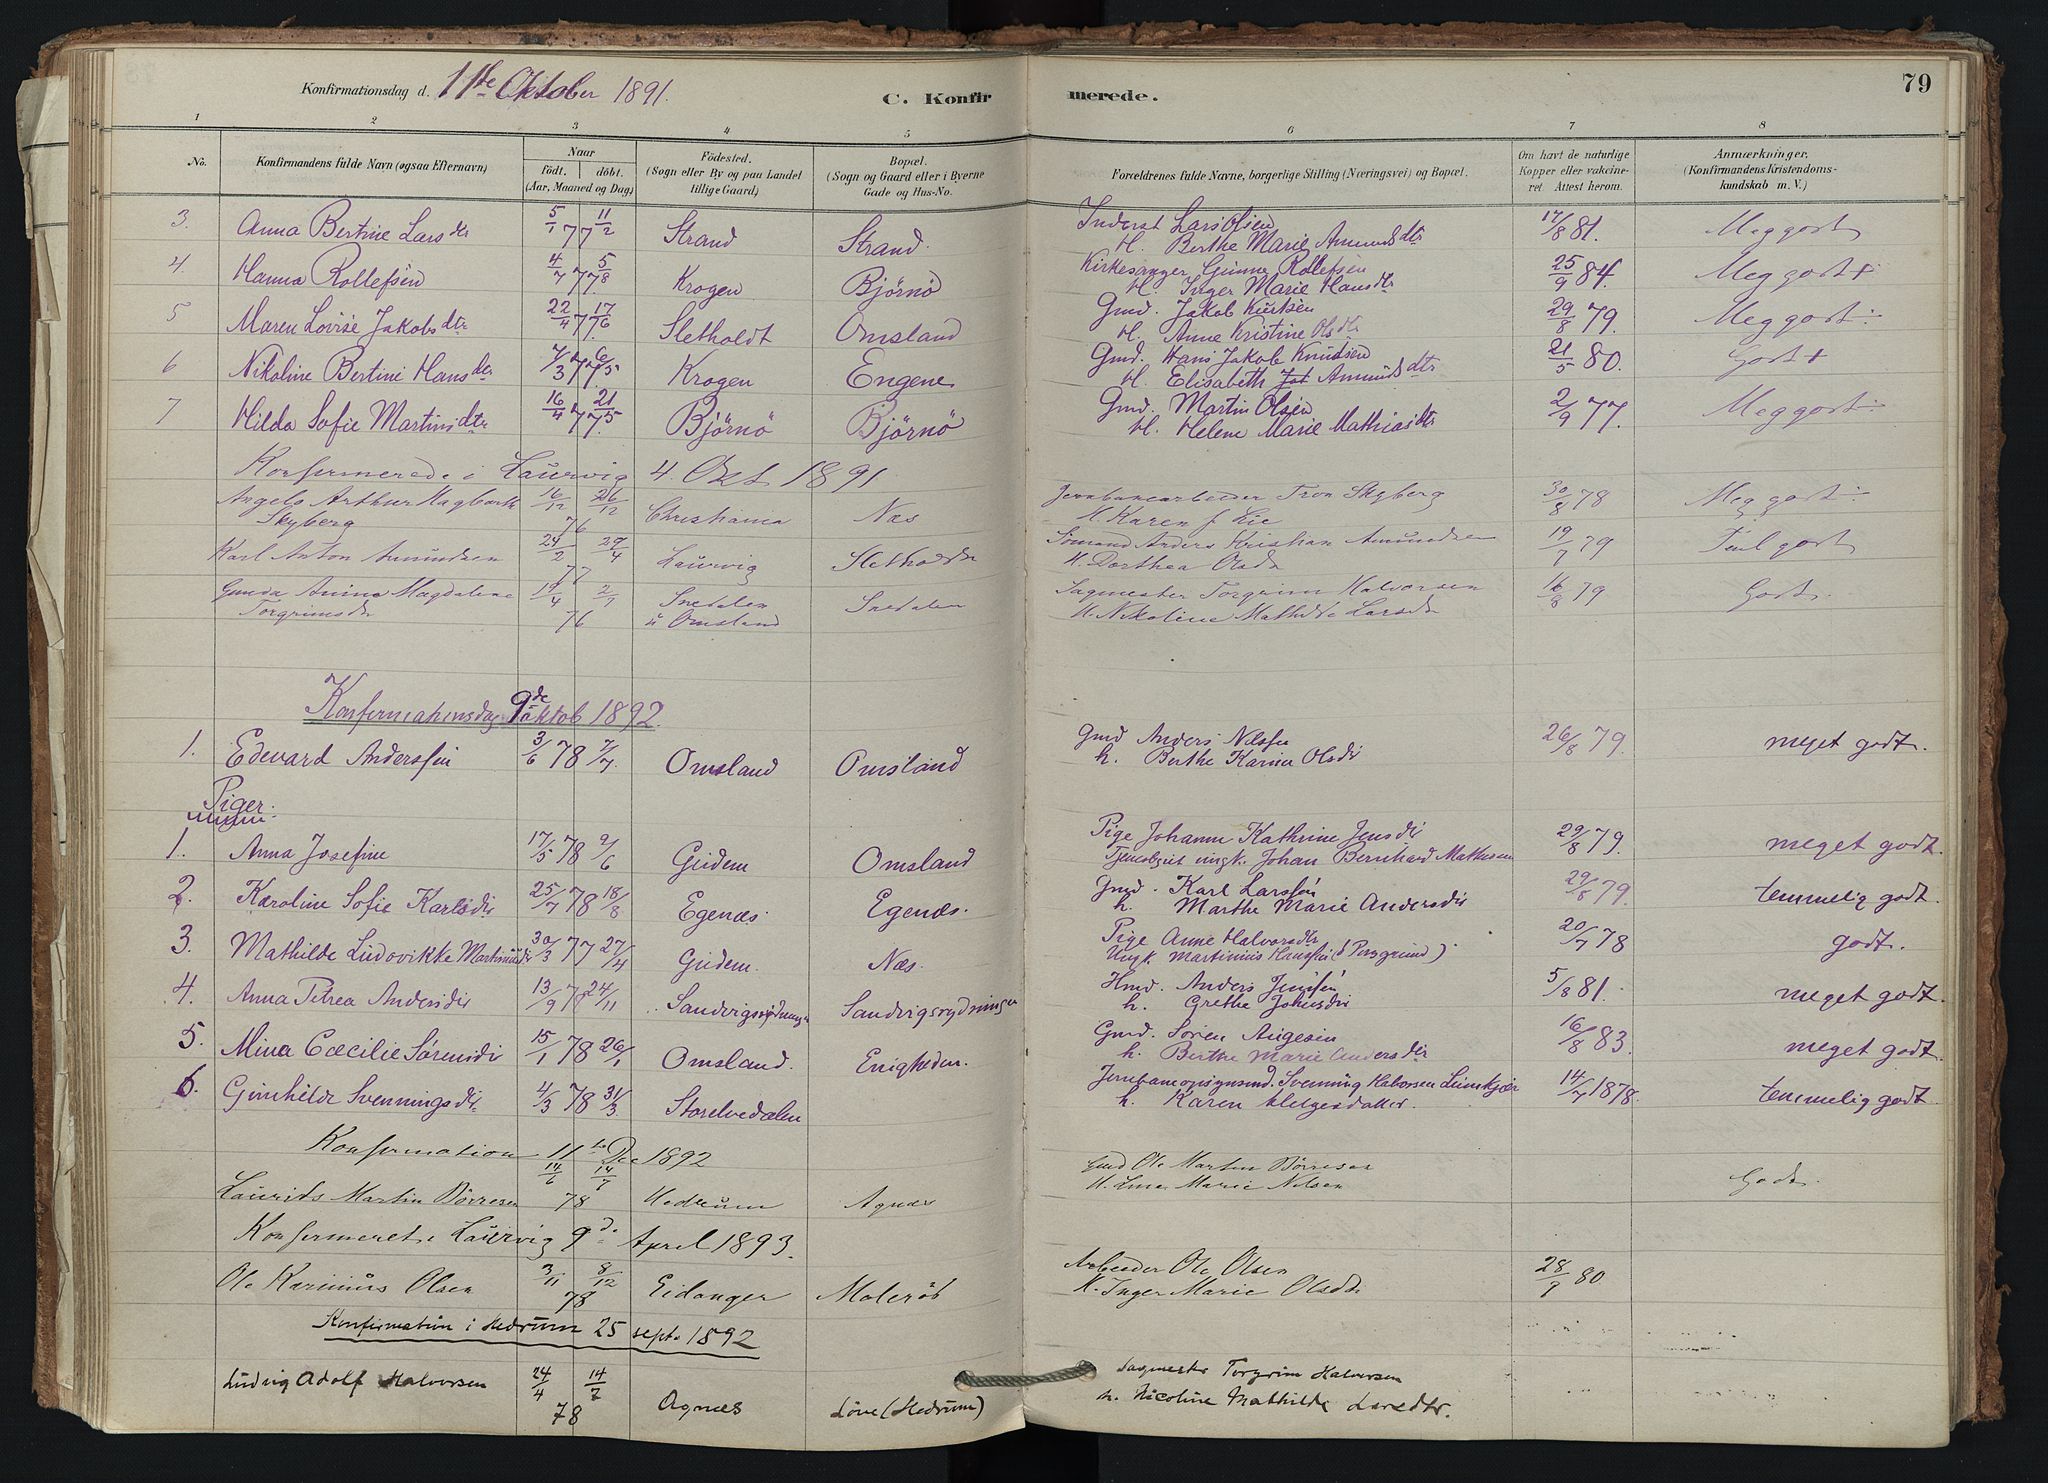 Konfirmationsdag d. 11te Oktober 1891. C. Konfirmerede. 79
1 2 3 4 5 6 7 8
No. Konfirmandens fulde Navn (ogsaa Efternavn) Naar födt. döbt. (Aar, Maaned og Dag) Födested. (Sogn eller By og paa Landet tillige Gaard) Bopæl. (Sogn og Gaard eller i Byerne Gade og Hus-No. Forældrenes fulde Navne, borgerlige Stilling (Næringsvei) og Bopæl. Om havt de naturlige Kopper eller vakcineret Attest herom. Anmærkninger. (Konfirmandens Kristendomskundskab m. V.)
3. Anna Bertine Larsdtr 5/1 77 11/2 Strand Strand. Inderst Lars Olsen 17/8 81. Meg godt
H. Berthe Marie Amundsdtr
4. Hanna Rollefsen 4/7 77 5/8 Krogen Bjørnø Kirkesanger Gunne Rollefsen 25/9 84. Meg godt +
H. Inger Marie Hansdtr
5 Maren Lovise Jakobsdtr 22/4 77 17/6 Sletholdt Omsland Gmd. Jakob Kurtsen 29/8 79. Meg godt ÷
H. Anne Kristine Olsdtr
6 Nikoline Bertine Hansdtr 7/3 77 6/5 Krogen Engene Gmd. Hans Jakob Knudsen 21/5 80. Godt +
H. Elisabeth Amundsdtr
7 Hilda Sofie Martinsdtr 16/4 77 21/5 Bjørnø Bjørnø Gmd. Martin Olsen 2/9 77. Meg godt ÷
H. Helene Marie Mathiasdtr
Konfermerede i Laurvig 4. Okt 1891
Angelo Arthur Hagbarth 16/12 26/12 Christiania Næs Jernbanearbeider Tron Skyberg 30/8 78 Meg godt ÷
Skyberg 76 H. Karen J. Lie
Karl Anton Amundsen 24/2 29/4 Laurvig Sletholdt Sömand Anders Kristian Amundsen 19/7 79 Tml godt
77 H. Dorthea Olsdr
Gunda Anina Magdalene 19/4 2/7 Snedalen Snedalen Sagmester Torgrim Halvorsen 16/8 79 Godt
Torgrimsdtr 76 u Omsland H. Nikoline Mathilde Larsdtr
Konfermationsdag 9de oktob 1892.
1. Edevard Anderssen 3/6 78 7/7. Omsland Omsland Gmd Anders Nilssen 26/8 79. meget godt.
h. Berthe Karine Olsdtr
Piger:
1. Anna Josefine 17/5 78 9/6 Gudem Omsland Pige Johanne Kathrine Jensdtr 29/8 79. meget godt.
ungk. Johan Bernhard Mathisen
2. Karoline Sofie Karlsdtr 25/7 78 18/8 Egenæs. Egenæs. Gmd. Karl Larssen 29/8 79. temmelig godt.
h. Marthe Marie Andersdtr
3. Mathilde Ludovikke 30/3 77 27/4 Gudem. Næs. Pige Anne Halvorsdtr 20/7 78 godt.
Ungk. Martinius Hanssen (Porsgrund)
4. Anna Petrea Andersdtr 13/9 78 24/11 Sandvigsrydningen Sandvigsrydningen Hmd. Anders Jenssen 5/8 81. meget godt.
h. Grethe Johnsdtr
5. Mina Cæcilie Sørensdtr 15/1 78 26/1 Omsland. Enigheden. Gmd. Soren Augesen 16/8 83. meget godt.
h. Berthe Marie Andersdtr
6. Gunhilde Svenningsdtr 4/3 78 31/3 Storelvedalen Jernbaneopsynsmd. Svenning Halvorsen 14/7 1878. temmelig godt.
h. Karen Helgesdatter.
Konfermation 11te Dec 1892
14/6 14/7 Gmd Ole Martin Börresen
Laurits Martin Börresen 78 Hedrum Agnæs H. Lina Marie Nilsen Godt.
Konfermeret i Laurvig 9de April 1893.
Ole Karinius Olsen 3/11 8/12 Eidanger Malerød Arbeider Ole Olsen 28/9 80
78 H. Inger Marie Olsdtr
Konfirmation i Hedrum 25 septr 1892
Ludvig Adolf Halvorsen 24/4 14/7 Agnæs Løve (Hedrum) Sagmester Torgrim Halvorsen
78 h. Nicoline Mathilde Larsdtr.